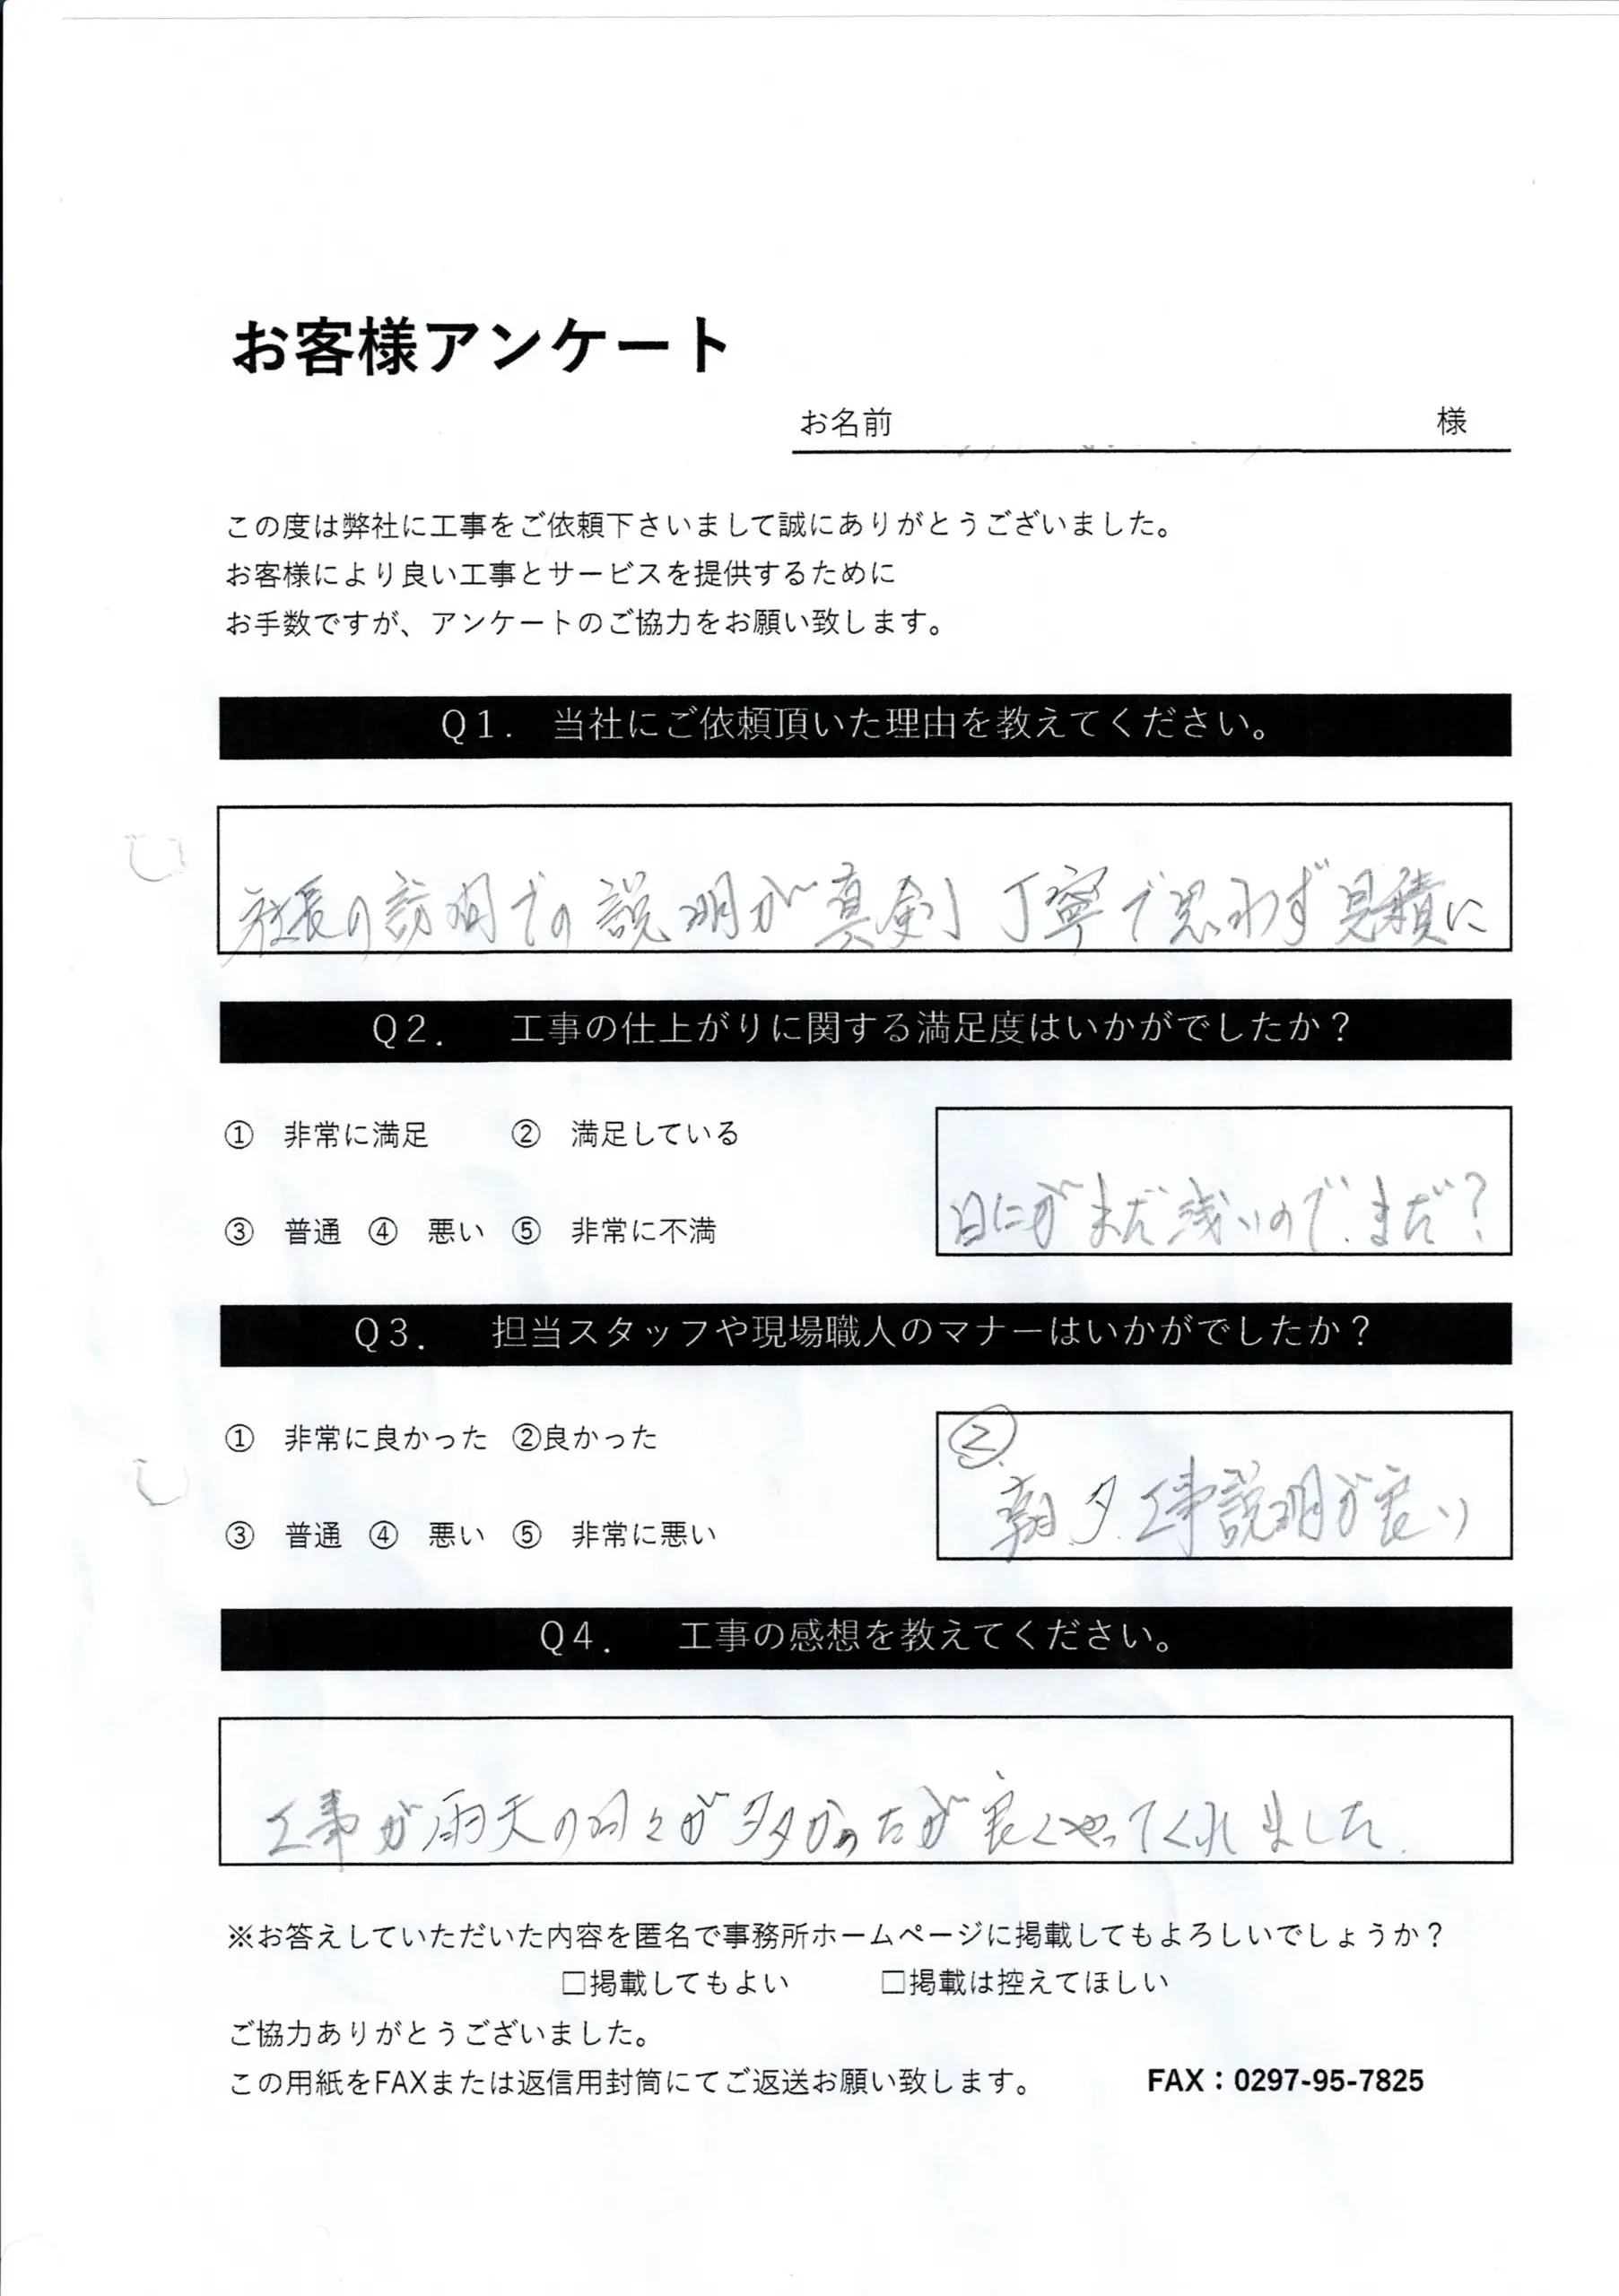 お客様アンケート
お名前 様
この度は弊社に工事をご依頼下さいまして誠にありがとうございました。
お客様により良い工事とサービスを提供するために
お手数ですが、アンケートのご協力をお願い致します。
Q1. 当社にご依頼頂いた理由を教えてください。
社長の訪問での説明が真剣丁寧で思わず見積に
Q2. 工事の仕上がりに関する満足度はいかがでしたか？
① 非常に満足 ② 満足している
③ 普通 ④ 悪い ⑤ 非常に不満
日にがまだ浅いので.まだ?
Q3. 担当スタッフや現場職人のマナーはいかがでしたか？
① 非常に良かった ②良かった
②
③ 普通 ④ 悪い ⑤ 非常に悪い
朝夕.工事説明が良い
Q4. 工事の感想を教えてください。
工事が雨天の日々が多かったが良くやってくれました.
※お答えしていただいた内容を匿名で事務所ホームページに掲載してもよろしいでしょうか？
□掲載してもよい □掲載は控えてほしい
ご協力ありがとうございました。
この用紙をFAXまたは返信用封筒にてご返送お願い致します。 FAX：0297-95-7825